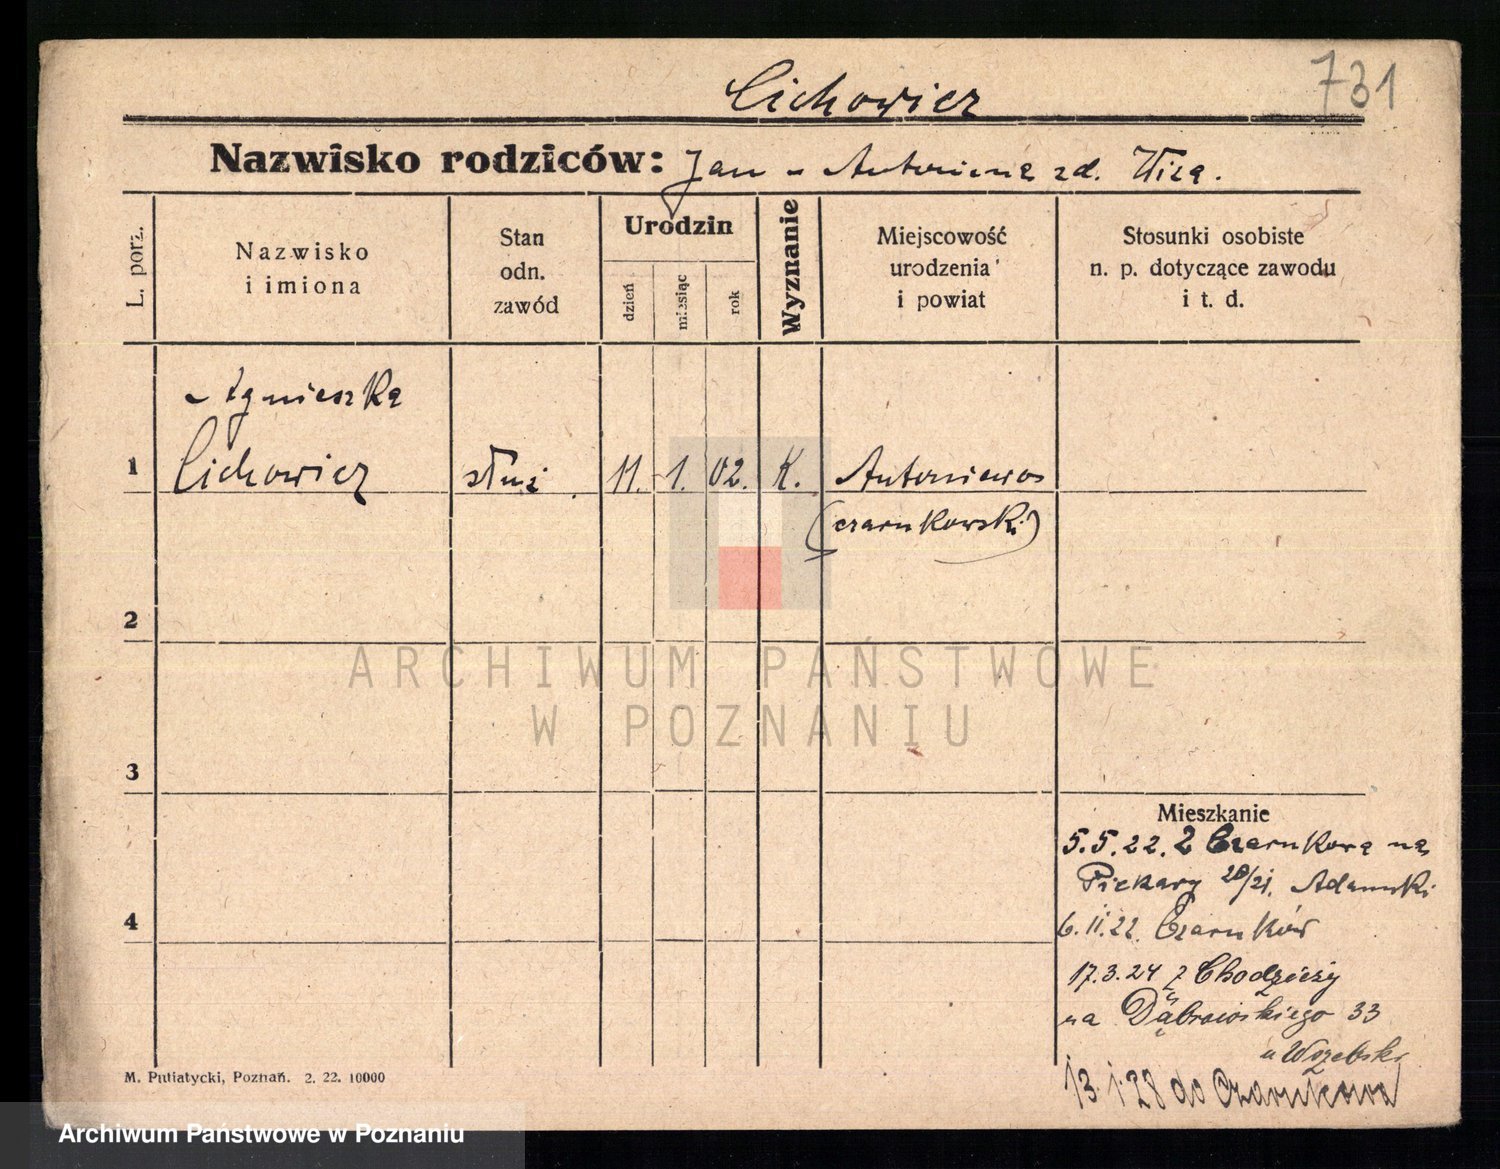 731
Cichowicz
Nazwisko rodziców: Jan - Antonina zd.
L. porz.
Nazwisko
i imiona
Stan
odn.
zawód
Urodzin
dzień
miesiąc
rok
Wyznanie
Miejscowość
urodzenia
i powiat
Stosunki osobiste
n. p. dotyczące zawodu
i t. d.
Agnieszka
1 Cichowicz służ. 11. 1. 02. K. Antoniewo
(czarnkowski)
2
3
4
Mieszkanie
5.5.22. z Czarnkowa na
Piekary 20/21. Adamski
6.11.22. Czarnków
17.3.24 z Chodzieży
na Dąbrowskiego 33
u
13.1.28 do Czarnkowa
M. Putiatycki, Poznań. 2. 22. 10000
ARCHIWUM PAŃSTWOWE
W POZNANIU
Archiwum Państwowe w Poznaniu